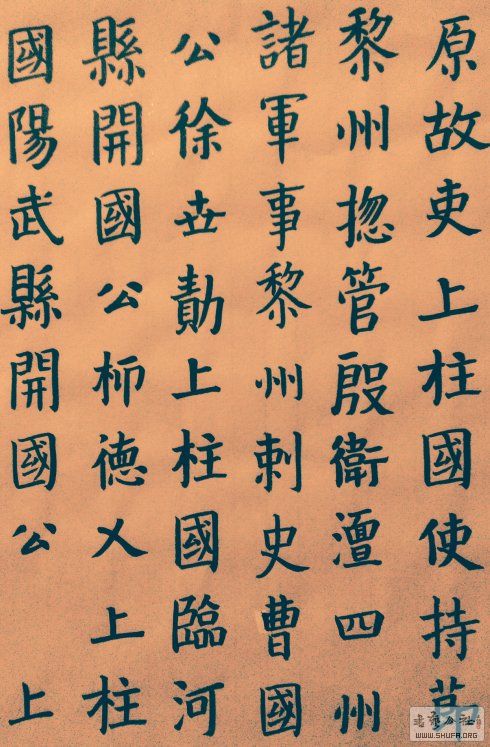 原故吏上柱國使持莭
黎州揔管殷衛澶四州
諸軍事黎州刺史曹國
公徐世勣上柱國臨河
縣開國公柳徳乂 上柱
國陽武縣開國公 上
书艺公社
WWW.SHUFA.ORG